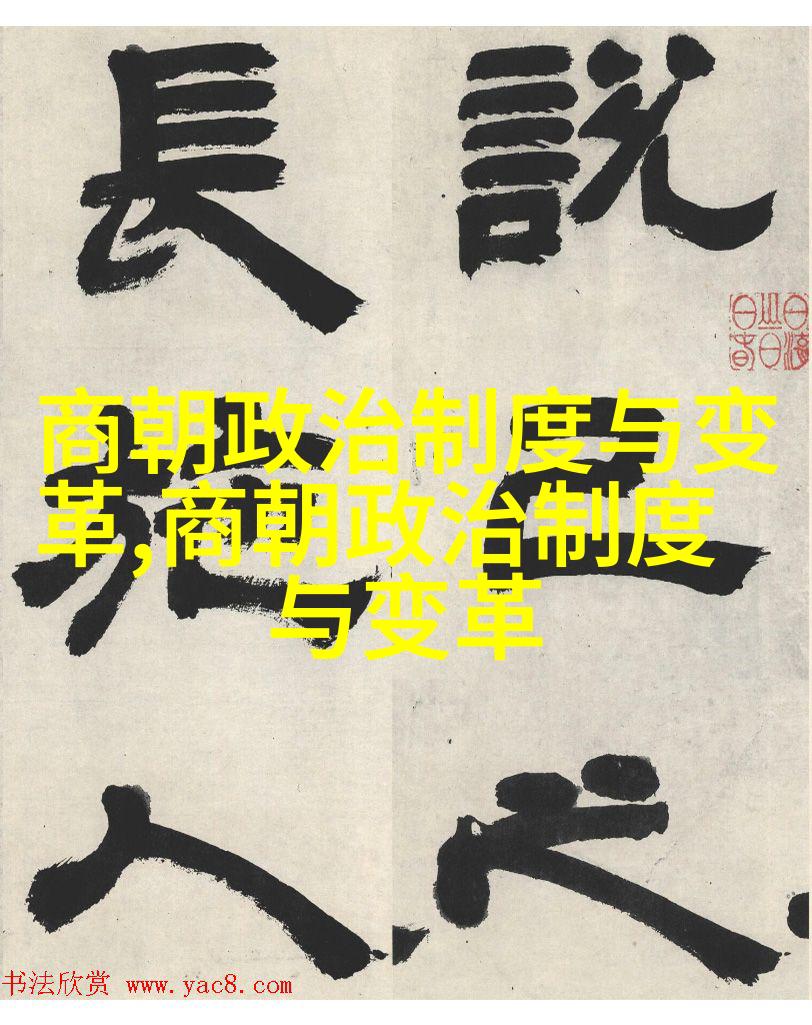 說己之
長施人
商朝政治制度与变
革,商朝政治制度
与变革
书法欣赏 www.yac8.com